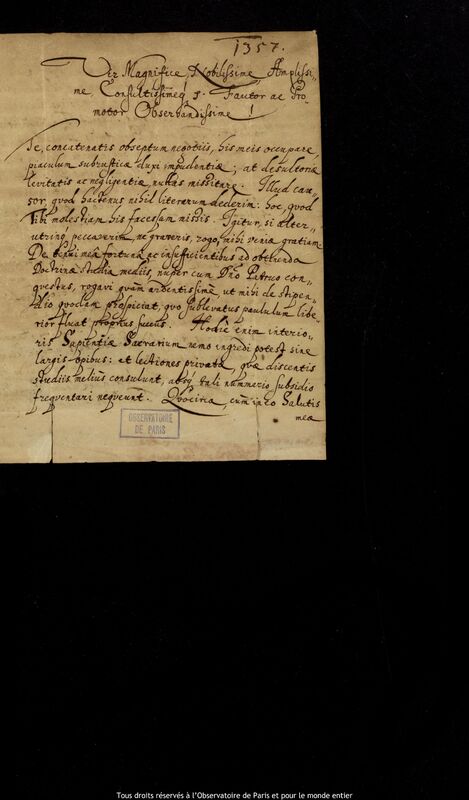 1357.
Vir Magnifice, Nobilissime, Amplissi„
me, Consultissimeq́; Fautor ac Pro„
motor Observandissime!
Te, concatenatis obseptum negotiis, his meis occupare,
piaculum subrusticæ duxi impudentiæ; at desultoriæ
levitatis ac negligentiæ, nullas missitare. Illud cau„
sor, quod hactenus nihil literarum dederim: hoc, quod
Tibi molestiam his facessam missis. Igitur, si alter„
utrinq́ peccaverim, ne graveris, rogo, mihi veniæ gratiam.
De tenui meâ fortunâ ac insufficientibus ad obeunda
Doctrinæ studia mediis, nuper cum Dno Petræo con„
questus, rogavi quàm ardentissimè, ut mihi de stipen„
dio quodam prospiciat, quo sublevatus paululum libe„
rior fiat
Hodiè enim interio„
ris Sapientiæ Sacrarium nemo ingredi potest sine
largis opibus: et lectiones privatæ, quæ discentis
studiis meliùs consulunt, absq́ tali nummario subsidio
freqventari neqveunt. Qvocirca, cùm in eo Salutis
meæ
OBSERVATOIRE
DE PARIS
Tous droits réservés à l'Observatoire de Paris et pour le monde entier